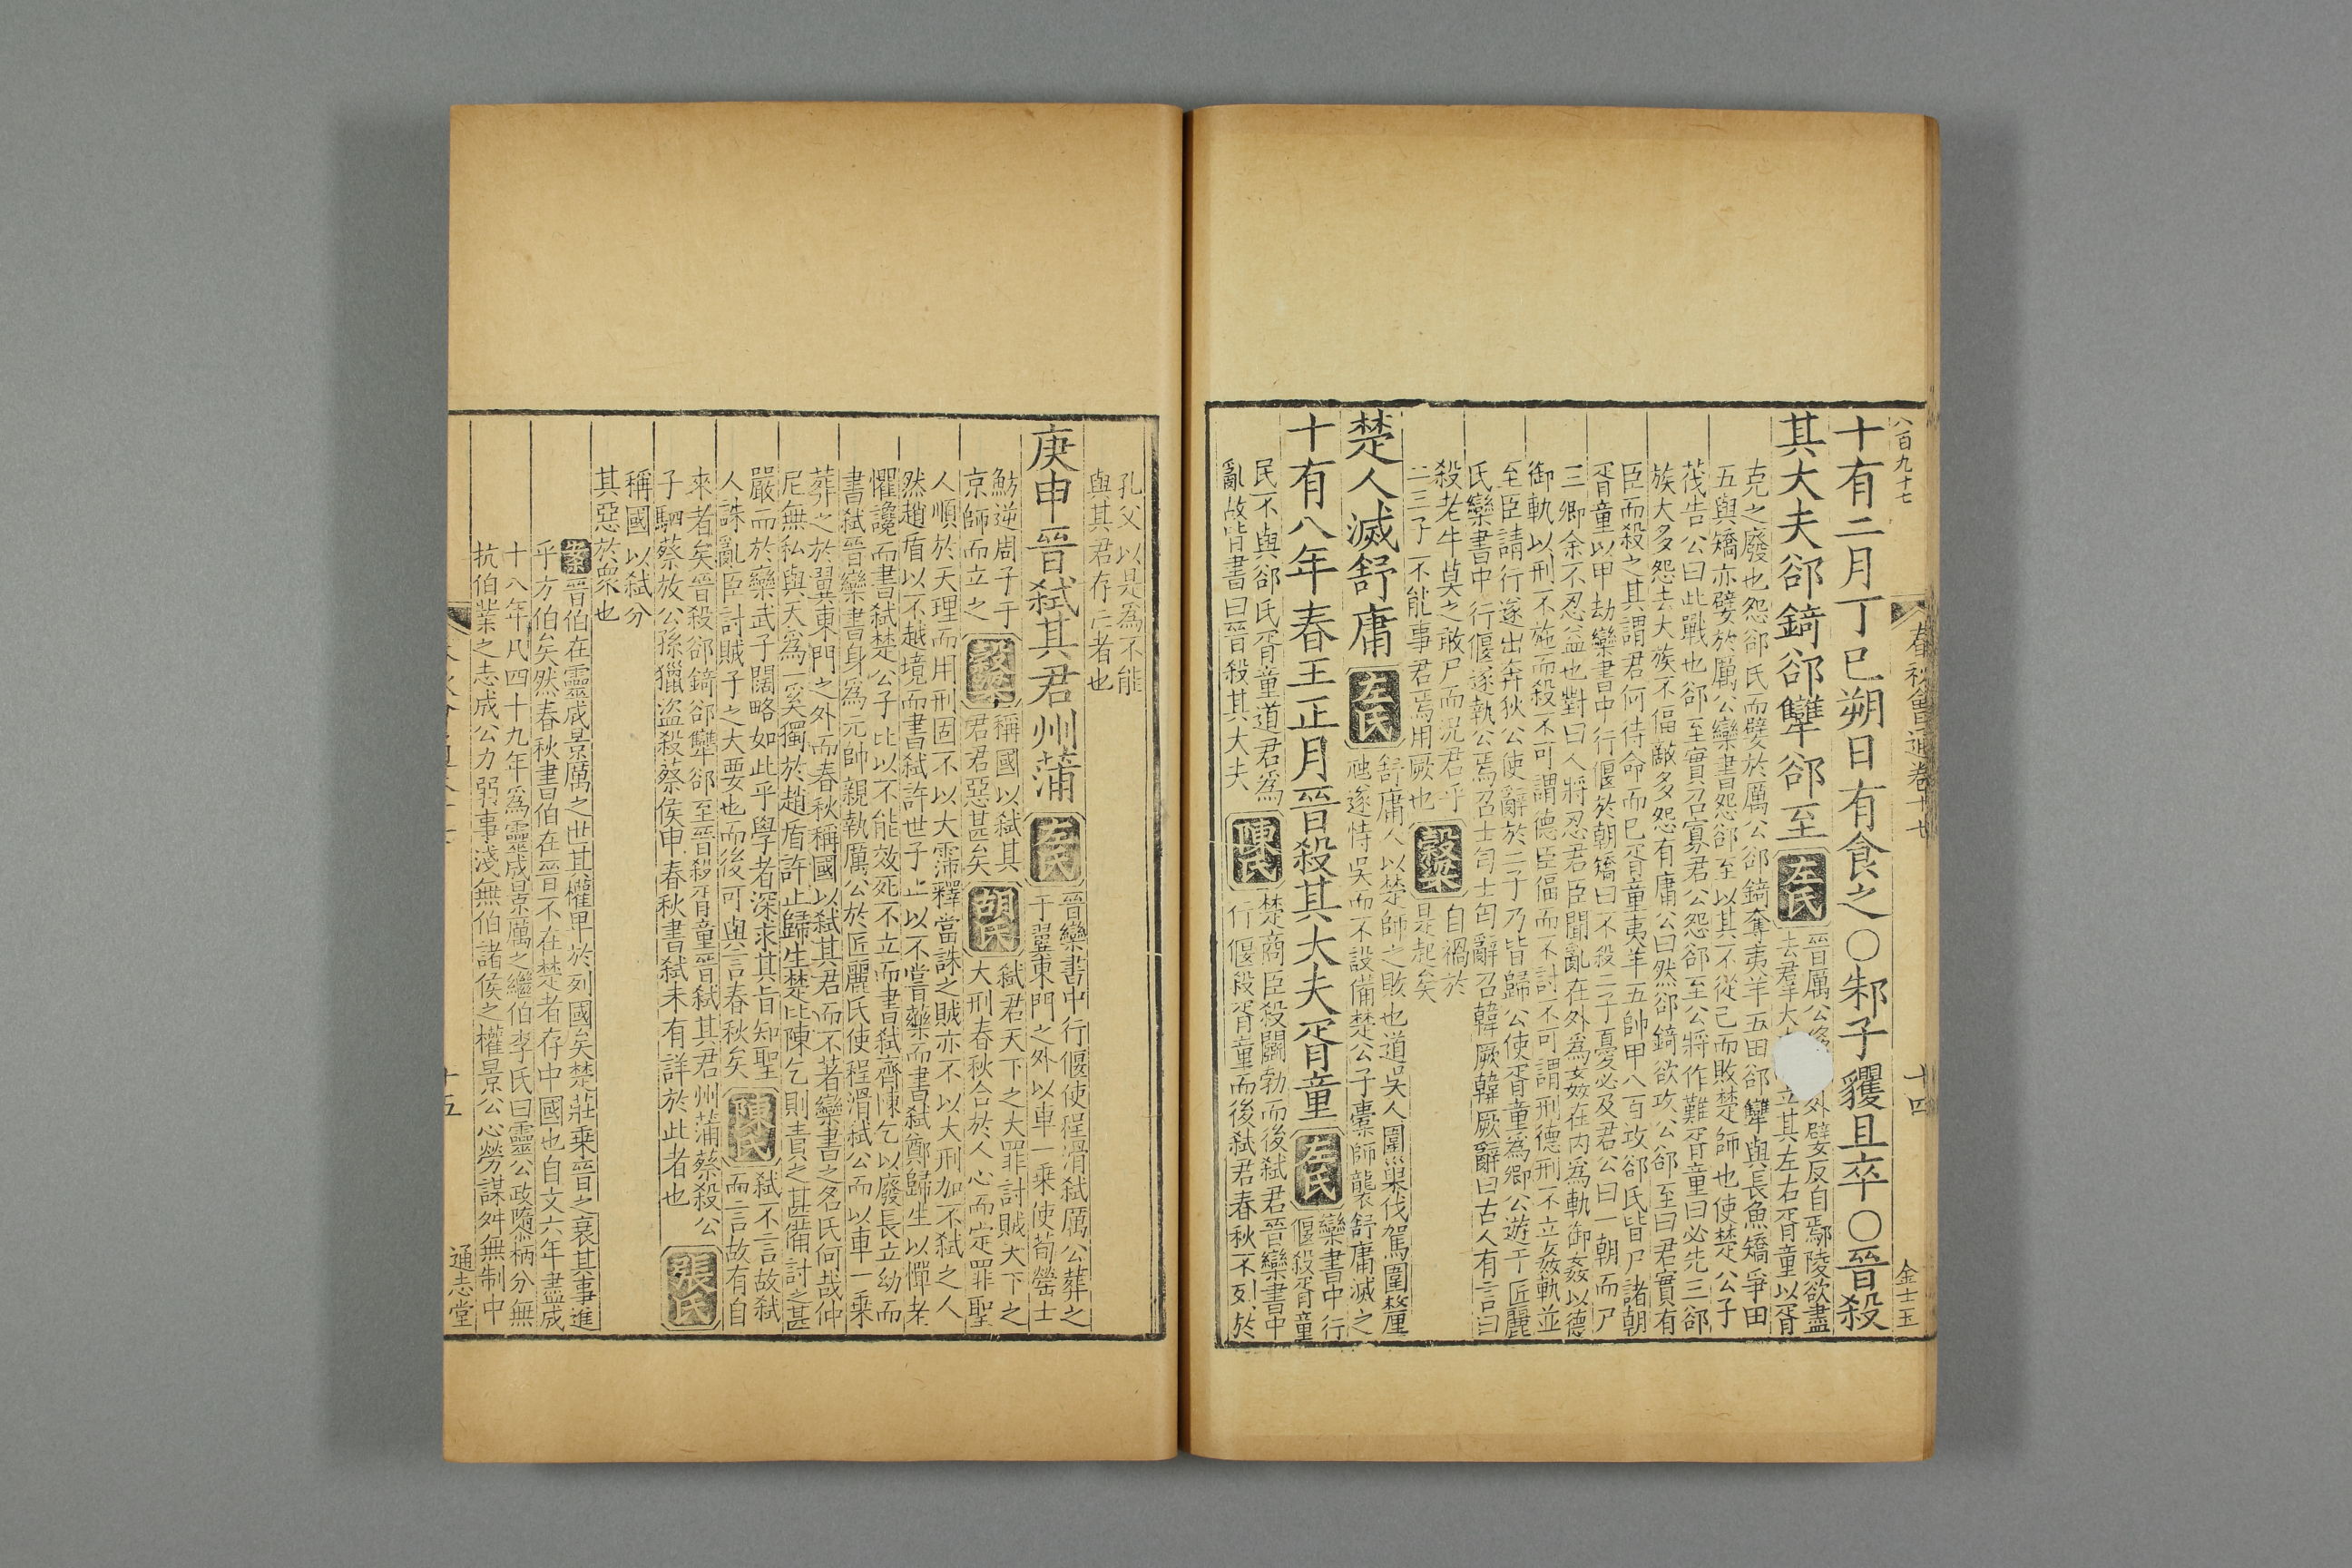 八百九十七
春秋會通卷十七
十四
金士玉
十有二月丁巳朔日有食之〇邾子貜且卒〇晉殺
其大夫郤錡郤犨郤至 左氏
晉厲公侈外嬖反自鄢陵欲盡
去羣大立其左右胥童以胥
克之廢也怨郤氏而嬖於厲公郤錡奪夷羊五田郤犨與長魚矯爭田
五與矯亦嬖於厲公欒書怨郤至以其不從己而敗楚師也使楚公子
茷告公曰此戰也郤至實召寡君公怨郤至公將作難胥童曰必先三郤
族大多怨去大族不偪敵多怨有庸公曰然郤錡欲攻公郤至曰君實有
臣而殺之其謂君何待命而已胥童夷羊五帥甲八百攻郤氏皆尸諸朝
胥童以甲劫欒書中行偃於朝矯曰不殺二子憂必及君公曰一朝而尸
三卿余不忍益也對曰人將忍君臣聞亂在外為姦在內為軌御姦以德
御軌以刑不施而殺不可謂德臣偪而不討不可謂刑德刑不立姦軌並
至臣請行遂出奔狄公使辭於二子乃皆歸公使胥童為卿公遊于匠麗
氏欒書中行偃遂執公焉召士匄士匄辭召韓厥韓厥辭曰古人有言曰
殺老牛莫之敢尸而況君乎
二三子不能事君焉用厥也
穀梁
自禍於
是起矣
楚人滅舒庸 左氏
舒庸人以楚師之敗也道吳人圍巢伐駕圍釐
虺遂恃吳而不設備楚公子橐師襲舒庸滅之
十有八年春王正月晉殺其大夫胥童 左氏
欒書中行
偃殺胥童
民不與郤氏胥童道君爲
亂故皆書曰晉殺其大夫
陳氏
楚商臣殺鬬勃而後弑君晉欒書中
行偃殺胥童而後弑君春秋不列於
孔父以是爲不能
與其君存亡者也
庚申晉弑其君州蒲 左氏
晉欒書中行偃使程滑弑厲公葬之
于翼東門之外以車一乘使荀罃士
魴逆周子于
京師而立之
穀梁
稱國以弑其
君君惡甚矣
胡氏
弑君天下之大罪討賊天下之
大刑春秋合於人心而定罪聖
人順於天理而用刑固不以大霈釋當誅之賊亦不以大刑加不弑之人
然趙盾以不越境而書弑許世子止以不嘗藥而書弑鄭歸生以憚老
懼讒而書弑楚公子比以不能效死不立而書弑齊陳乞以廢長立幼而
書弑晉欒書身爲元帥親執厲公於匠麗氏使程滑弑公而以車一乘
葬之於翼東門之外而春秋稱國以弑其君而不著欒書之名氏何哉仲
尼無私與天爲一奚獨於趙盾許止歸生楚比陳乞則責之甚備討之甚
嚴而於欒武子闊略如此乎學者深求其旨知聖
人誅亂臣討賊子之大要也而後可與言春秋矣
陳氏
弑不言故弑
而言故有自
來者矣晉殺郤錡郤犨郤至晉殺胥童晉弑其君州蒲蔡殺公
子駟蔡放公孫獵盜殺蔡侯申春秋書弑未有詳於此者也
張氏
稱國以弑分
其惡於衆也
案
晉伯在靈成景厲之世其權卑於列國矣楚莊乘晉之衰其事進
乎方伯矣然春秋書伯在晉不在楚者存中國也自文六年盡成
十八年凡四十九年爲靈成景厲之繼伯李氏曰靈公政隨柄分無
抗伯業之志成公力弱事淺無伯諸侯之權景公心勞謀舛無制中
十五
通志堂